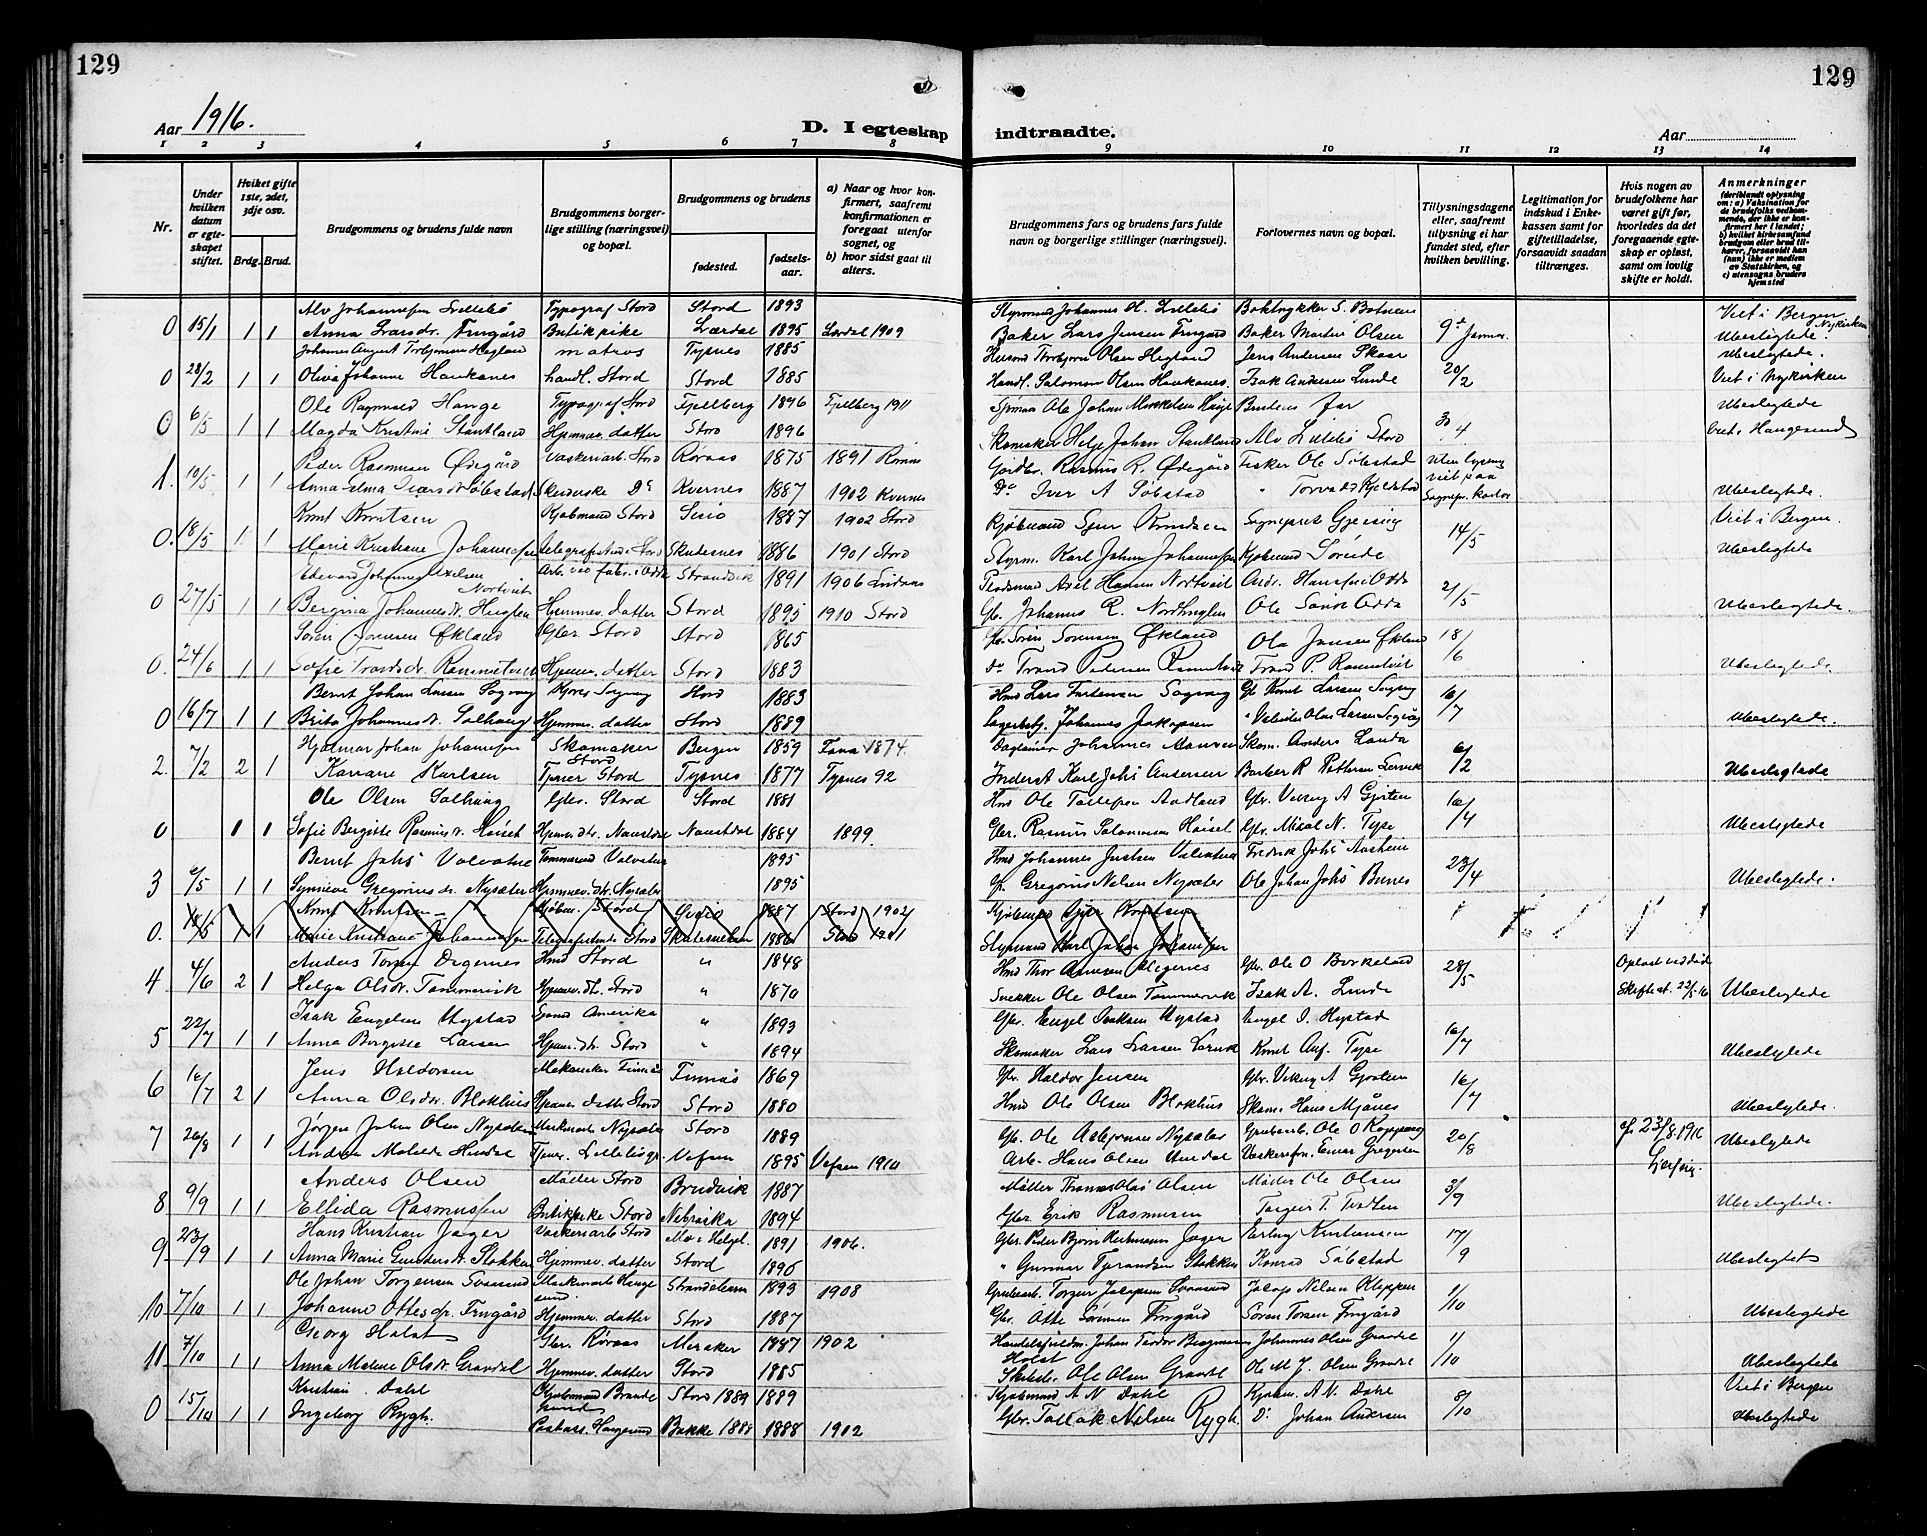 129
129
Aar 1916.
D. I egteskap
indtraadte.
Aar
1 2 3 4 5 6 7 8
9 10 11 12 13 14
Nr.
Under hvilken datum er egteskapet stiftet.
Hviket gifte 1ste, 2det, 3dje osv.
Brdg. Brud.
Brudgommens og brudens fulde navn
Brudgommens borgerlige stilling (næringsvei) og bopæl.
Brudgommens og brudens
fødested.
fødselsaar.
a) Naar og hvor konfirmert, saafremt konfirmationen er foregaat utenfor sognet, og
b) hvor sidst gaat til alters.
Brudgommens fars og brudens fars fulde navn og borgerlige stillinger (næringsvei).
Forlovernes navn og bopæl.
Tillysningsdagene eller, saafremt tillysning ei har fundet sted, efter hvilken bevilling.
Legitimation for indskud i Enkekassen samt for giftetilladelse, forsaavidt saadan tiltrænges.
Hvis nogen av brudefolkene har været gift før, hvorledes da det foregaaende egteskap er opløst, samt om lovlig skifte er holdt.
Anmerkninger
(deriblandt oplysning om: a) Vaksination for de brudefolks vedkommende, der ikke er konfirmert her i landet; b) hvilket kirkesamfund brudgom eller brud tilhører, forsaavidt han (hun) ikke er medlem av Statskirken, og c) utensogns bruders hjemsted
Alv Johannessen Lillebø Typograf Stord Stord 1893
Styrmand Johannes H. Lillebø Boktrykker S. Botnen Viet i Bergen Nykirken
0 15/1 1 1 Anna Larsdr. Frugård Butikpike Lærdal 1895 Lærdal 1909
Baker Lars Jensen Frugård Baker Martin Olsen 9de Januar Ubeslegtede.
Johannes August Torbjørnsen Hegland matros Tysnes 1885
Husmd Torbjørn Olsen Hegland Jens Andersen Skaar Ubeslegtede.
0 28/2 1 1 Olivia Johanne Haukanes handl. Stord Stord 1885
Handl. Salomon Olsen Haukanes. Isak Andersen Lunde 20/2 Viet i Nykirken
Ole Ragnvald Hauge Typograf Stord Fjellberg 1896 Fjellberg 1911
Ole Johan Mikkelsen Hauge Brudens Far Ubeslegtede
0 6/5 1 1 Magda Kristine Stautland Hjemmev. datter Stord 1896
Skomaker Helge Johan Stautland Alv Lillebø Stord 30/4 Viet i Haugesund
Peder Rasmussen Ødegård Vaskeriarb. Stord Røraas 1875 1891 Røraas
Gardbr. Rasmus R. Ødegård Fisker Ole Søbstad Uten lysning
1. 10/5 1 1 Anna Selma Iversdr Søbstad Do Kvernes 1887 1902 Kvernes
Do Iver A Søbstad viet paa Sognepr. kontor Ubeslegtede.
Knut Knutsen Kjøbmand Stord 1887 1902 Stord
Kjøbmand Knudsen Sognepret Gjessing Viet i Bergen.
0. 18/5 1 1 Marie Kristiane Johannessen Telegrafistinde Stord Skudesnes 1886 1901 Stord
Styrm. Karl Johan Johannessen Kjøbmand 14/5 Ubeslegtede
Edevard Johannes Axelsen Nortveit Arb. ved fabr. i Odda Strandvik 1891 1906
Axel Hansen Nortveit Odda
0 27/5 1 1 Bergina Johannesdr. Huglen Hjemmev. datter Stord 1895 1910 Stord
Gbr. Johannes R. Nordhuglen Ole Odda 21/5 Ubeslegtede.
Søren Sørensen Økland Gbr Stord Stord 1865
Gbr. Søren Sørensen Økland Ola Jensen Økland
0. 24/6 1 1 Sofie Trondsdr. Rommetveit Hjemmev. datter Stord 1883
Do Trond Pedersen Rommetveit Trond P. Rommetveit 18/6 Ubeslegtede.
Bernt Johan Larsen Sagvag Sagvag Stord 1883
Hmd Lars Torstensen Sagvag Gbr Knut Larsen Sagvag
0 16/7 1 1 Brita Johannesdr. Solhaug Hjemmev. datter Stord 1889
Johannes Jakopsen Olai Larsen Sagvåg 16/7 Ubeslegtede.
Hjalmar Johan Johannessen Skomaker Stord Bergen 1859 Fana 1874.
Daglønner Johannes Skom. Anders Lunda
2. 7/2 2 1 Karlsen Tjener Stord Tysnes 1877 Tysnes 92
Inderst Karl Johs Andersen Barber R Pettersen Lervik 6/2 Ubeslegtede
Ole Olsen Solhaug Gbr. Stord Stord 1881
Hmd Ole Tollefsen Aadland Gbr. Viking A Gjøsten
0 1 1 Sofie Bergitte Rasmusdr. Høiset Hjemmev. dtr. Naustdal Naustdal 1884 1899.
Gbr. Rasmus Salomonsen Høiset Gbr. Mikal N. Tyse 16/4 Ubeslegtede
Bernt Johs Valvatne Tømmermd Valvatne 1895
Hmd Johannes Jensen Valvatne Fredrik Johs Aasheim
3 6/5 1 1 Synneve Gregoriusdr. Nysæter Hjemmev. dtr. Nysæter 1895
Gbr. Gregorius Nilsen Nysæter Ole Johan Johs Bunes 23/4 Ubeslegtede.
Knut Knutsen Kjøbm. Stord 1887 Stord 1902
Kjøbmand Knutsen
0. 18/5 1 1 Marie Kristiane Johannessen Telegrafistinde Stord Skudesneshavn 1886 Stord 1901
Styrmand Karl Johan Johannessen
Anders Torsen Digernes Hmd Stord " 1848
Hmd Thor Digernes Gbr. Ole O Birkeland Opløst ved død
4 4/6 2 1 Helga Olsdr. Tømmervik Hjemmev. dtr. Stord " 1870
Snekker Ole Olsen Tømmervik Isak A. Lunde 28/5 Skifteat. 23/5 16 Ubeslegtede
Isak Engelsen Hystad Amerika " 1893
Gbr. Engel Isaksen Hystad Engel I. Hystad
5 22/7 1 1 Anna Bergitte Larsen Hjemmev. dtr. Stord " 1894
Skomaker Lars Larsen Lervik Knut Anf. Tyse 16/7 Ubeslegtede
Jens Haldorsen Mekaniker Finnås Finnås 1869
Gbr. Haldor Jensen Gbr. Viking A Gjøsten
6 16/7 2 1 Anna Olsdr. Blokhus Hjemmev. datter Stord Stord 1880
Hmd Ole Olsen Blokhus Skom. Hans Mjånes 16/7 Ubeslegtede.
Jørgen Johan Olsen Nysæter Nysæter Stord 1889
Gbr. Ole Asbjørnsen Nysæter Grubearb. Ole O Koppang cf. 23/8 1916
7 26/8 1 1 Andrea Matilde Hundal Tjener. Vefsen 1895 Vefsen 1910
Arb. Hans Olsen Hundal Einar Gregersen 20/8 Gjessing Ubeslegtede
Anders Olsen Møller Stord Bruvik 1887
Møller Thomas Olai Olsen Møller Ole Olsen
8 9/9 1 1 Ellida Rasmussen Butikpike Stord Nebraska 1894
Gbr Erik Rasmussen Torgeir T. Tveiten 3/9 Ubeslegtede.
Hans Kristian Jæger Vaskeriarb Stord Mo i Helgel. 1891 1906.
Gbr. Peder Bjørn Jæger Erling Kristiansen
9 23/9 1 1 Anna Marie Gundersdr. Stokken Hjemmev. datter Stord 1896
" Gunnar Tjerandsen Stokken Konrad Søbstad 17/9 Ubeslegtet
Ole Johan Torgersen Svansund Haugesund. Strandebarm 1893 1908
Grubearb. Torger Jakopsen Svansund Jakop Nilsen Kleppen
10 7/10 1 1 Johanne Ottesdr. Frugård Hjemmev. datter Stord 1887
Gbr. Otte Sørensen Frugård Søren Torsen Frugård 1/10 Ubeslegtede
Georg Holst Gbr. Røraas Meraker 1887 1902
Johan Teodor Bergmann Holst Johannes Olsen Gravdal
11 7/10 1 1 Anna Malene Olsdr. Gravdal Hjemmev. datter Stord 1885
Ole Olsen Gravdal Ole M J. Olsen Gravdal 1/10 Ubeslegtede
Kristian Dahl Kjøbmand Stord 1889 1889
Kjøbmand A N Dahl Kjøbm. A. N. Dahl Viet i Bergen
0 15/10 1 1 Ingeborg Rygh. Haugesund Bakke 1888 1888 1902
Gbr. Tollak Nilsen Rygh. Do Johan Andersen 8/10 Ubeslegtede